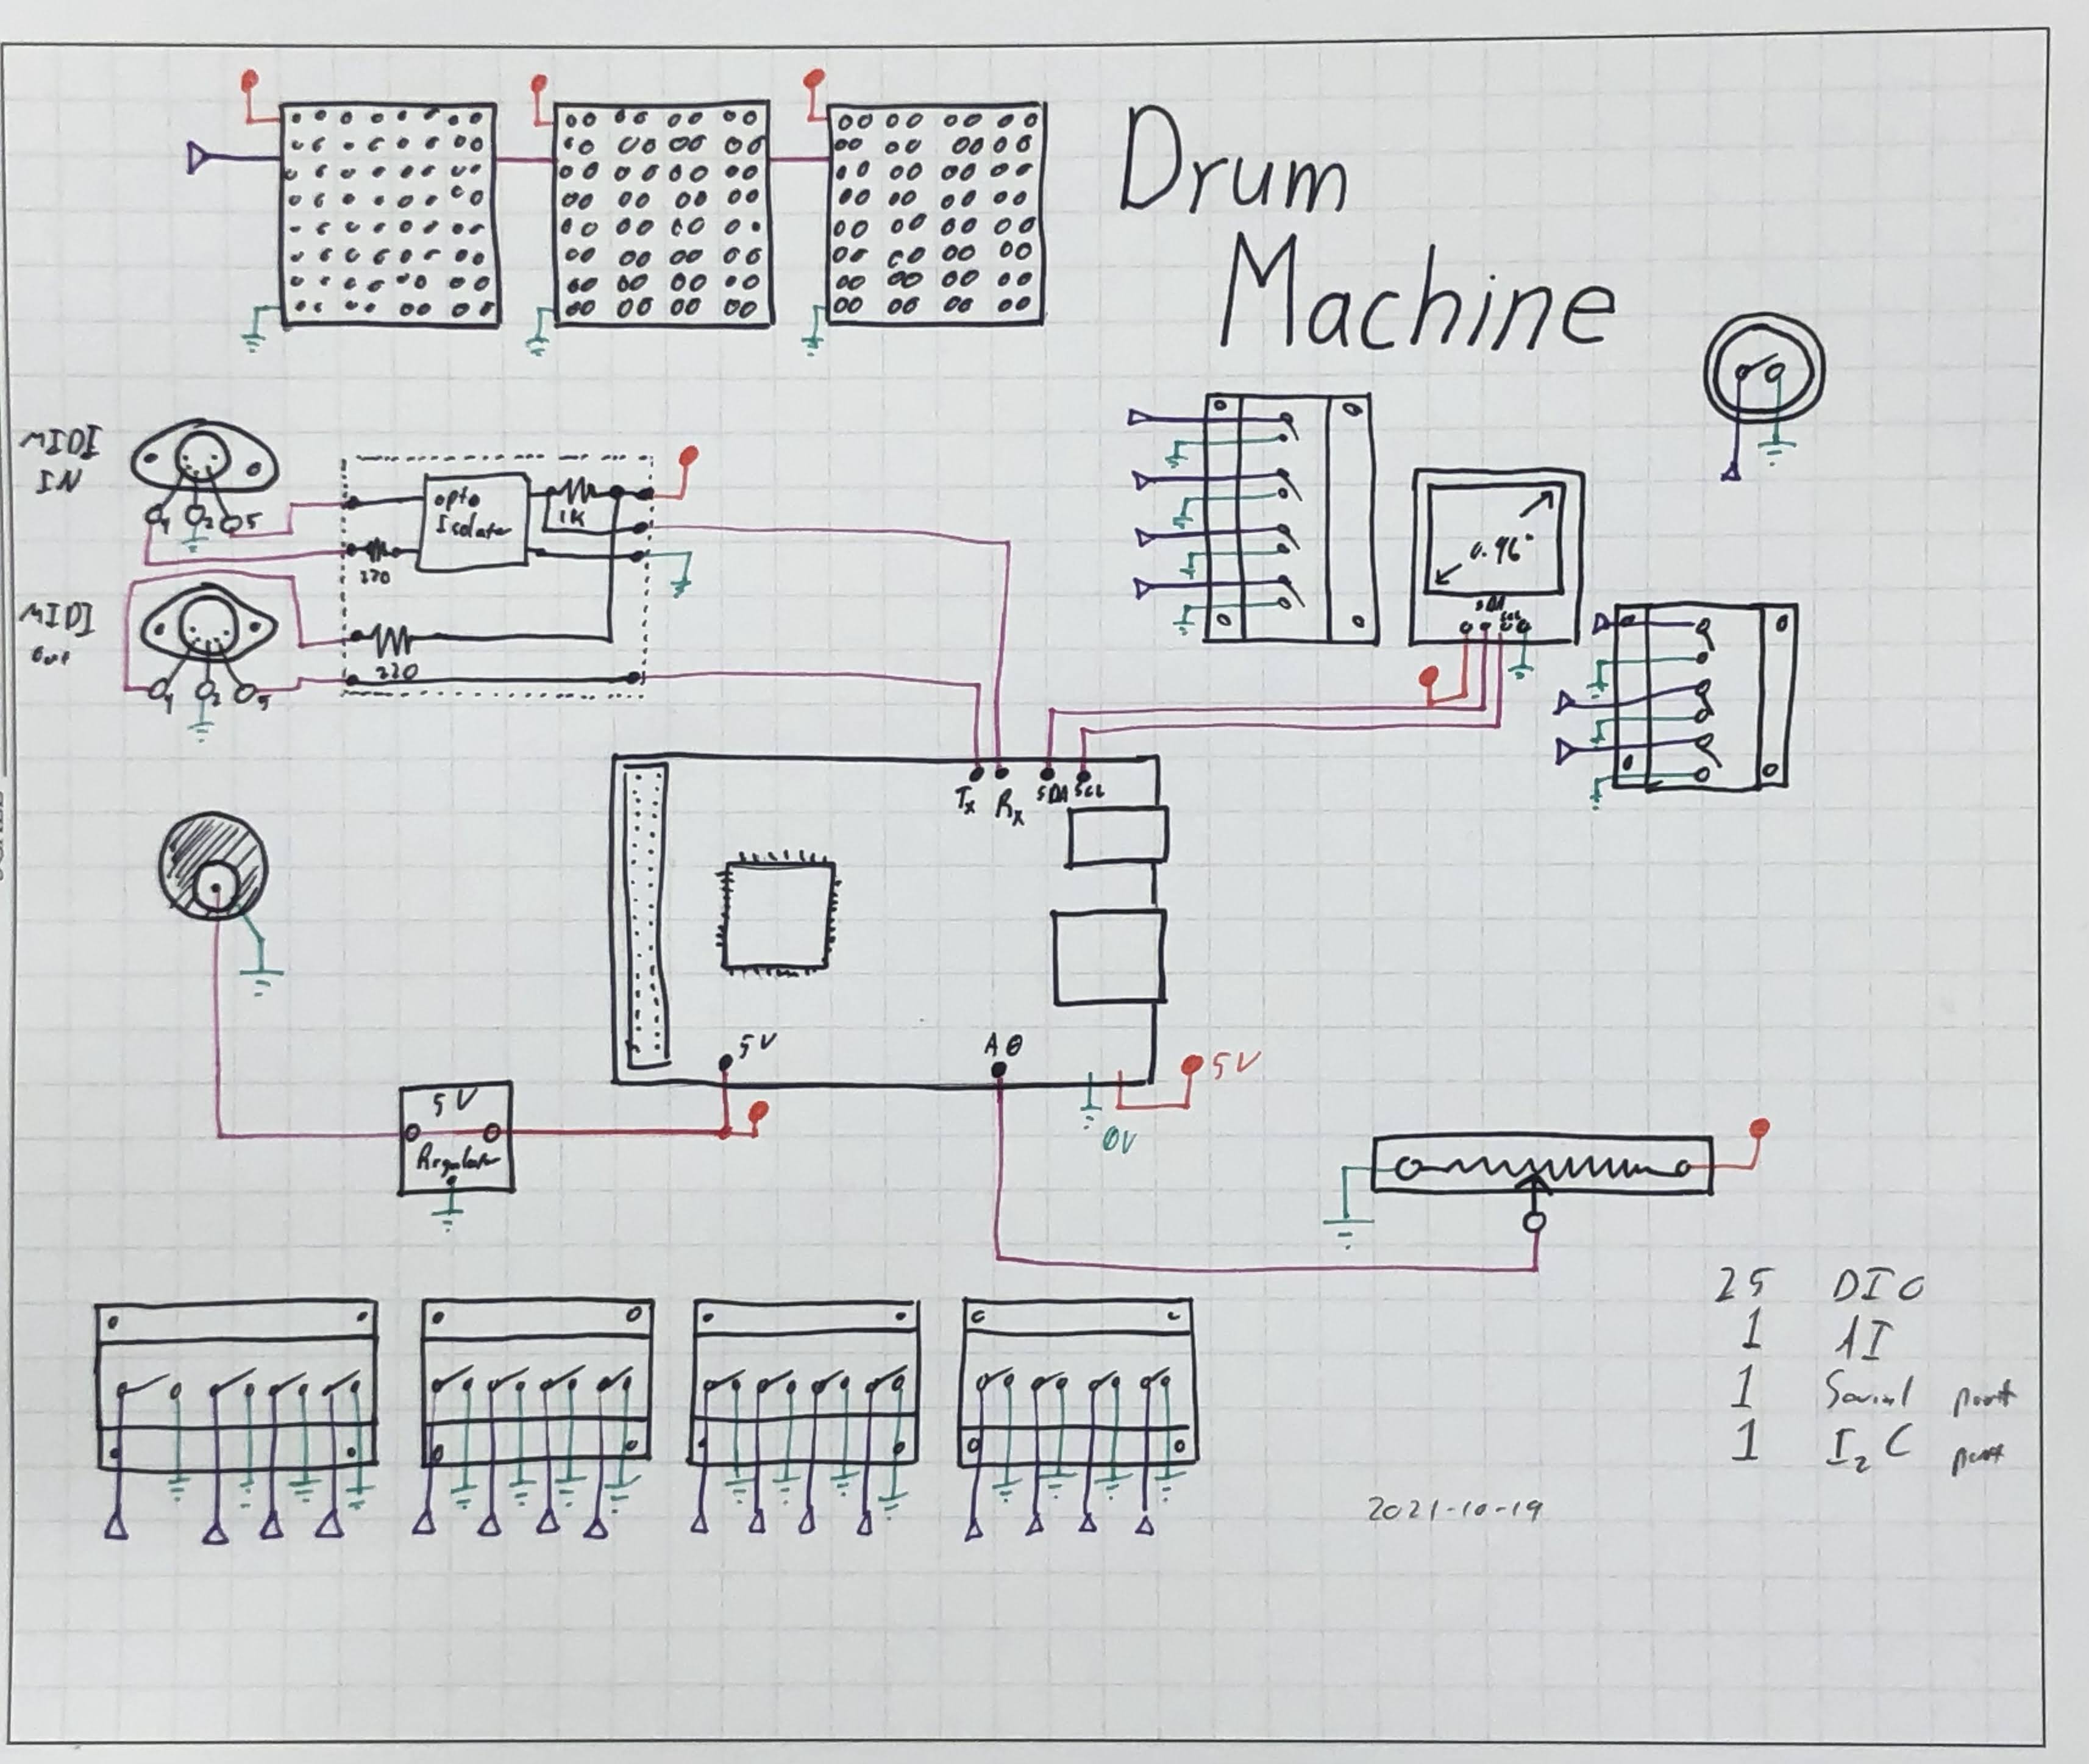 Drum
Machine
MIDI
IN
opto
Isolator
1K
220
4 2 5
MIDI
out
220
4 2 5
0.96"
SDA
SCL
Tx Rx SDA SCL
5V
A0
5V
0V
5V
Regulator
25 DIO
1 AI
1 Serial port
1 I2C port
2021-10-19